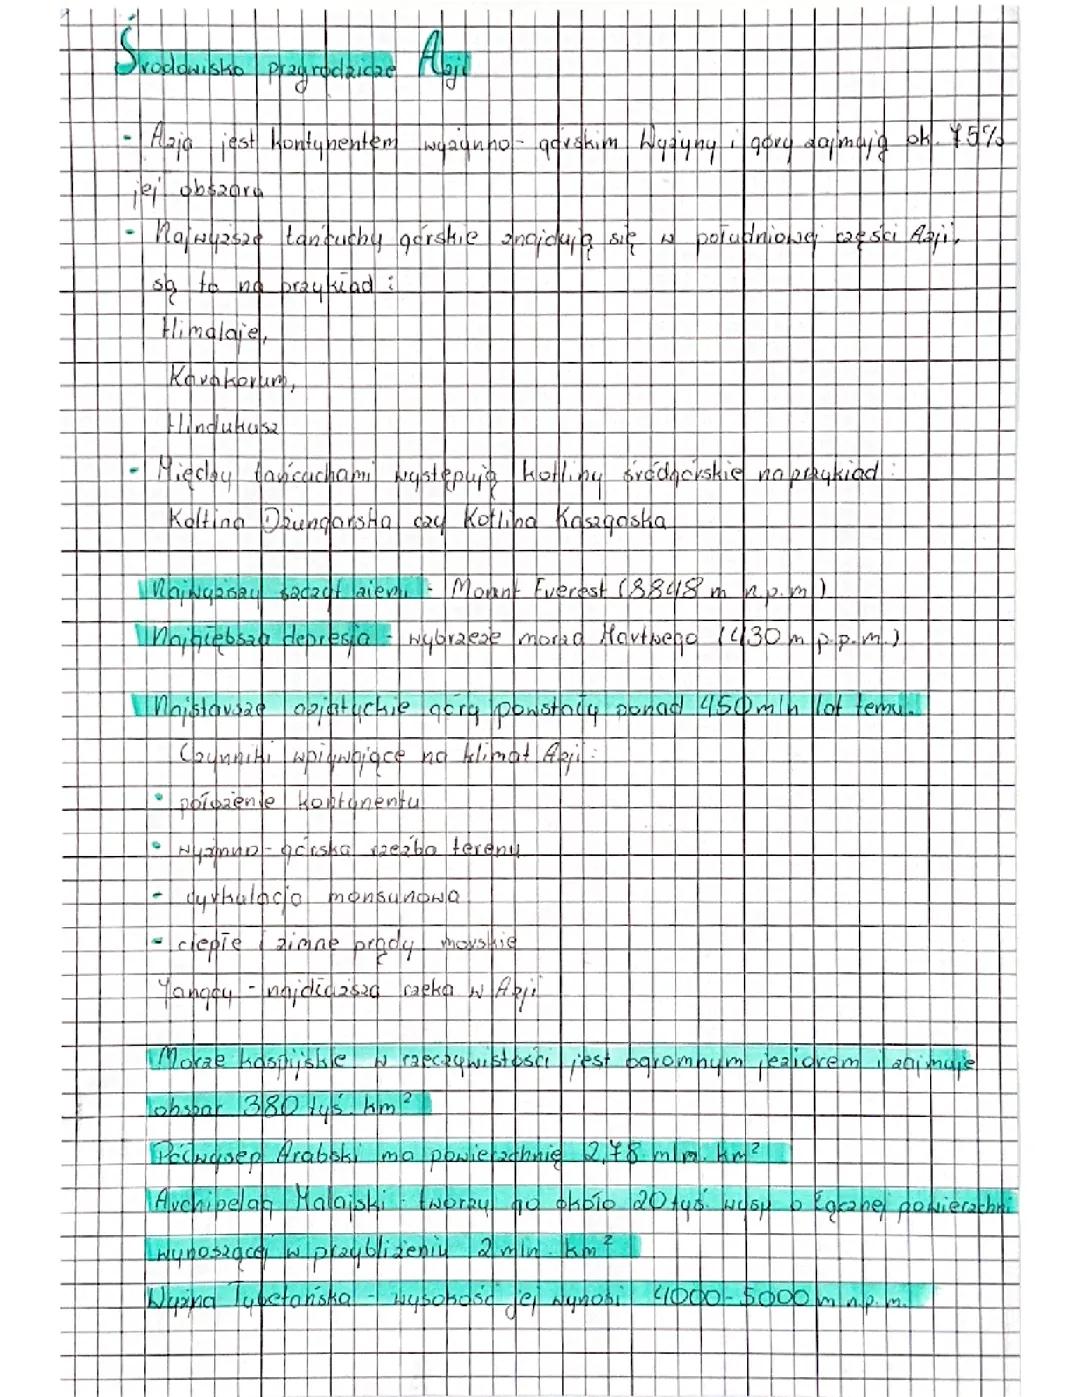 Środowisko przyrodnicze Azji
- Azja jest kontynentem wyżynno-górskim Wyżyny i góry zajmują ok. 75%
jej obszaru
- Najwyższe łańcuchy górskie znajdują się w południowej części Azji,
są to na przykład:
Himalaje,
Karakorum,
Hindukusz
- Między łańcuchami występują kotliny śródgórskie na przykład:
Kotlina Dżungarska czy Kotlina Kaszgaska
Najwyższy szczyt ziemi: Mount Everest (8848 m n.p.m)
Najgłębsza depresja - wybrzeże morza Martwego (430 m p.p.m.)
Najstarsze azjatyckie góry powstały ponad 450 mln lat temu.
Czynniki wpływające na klimat Azji:
• położenie kontynentu
• wyżynno-górska rzeźba terenu
- cyrkulacja monsunowa
- ciepłe i zimne prądy morskie
Jangcy - najdłuższa rzeka w Azji
Morze Kaspijskie w rzeczywistości jest ogromnym jeziorem i zajmuje
obszar 380 tyś. km²
Półwysep Arabski ma powierzchnię 2,78 mln. km²
Archipelag Malajski - tworzy go około 20 tyś. wysp o łącznej powierzchni
wynoszącej w przybliżeniu 2 mln. km²
Wyżyna Tybetańska - wysokość jej wynosi 4000-5000 m n.p.m.